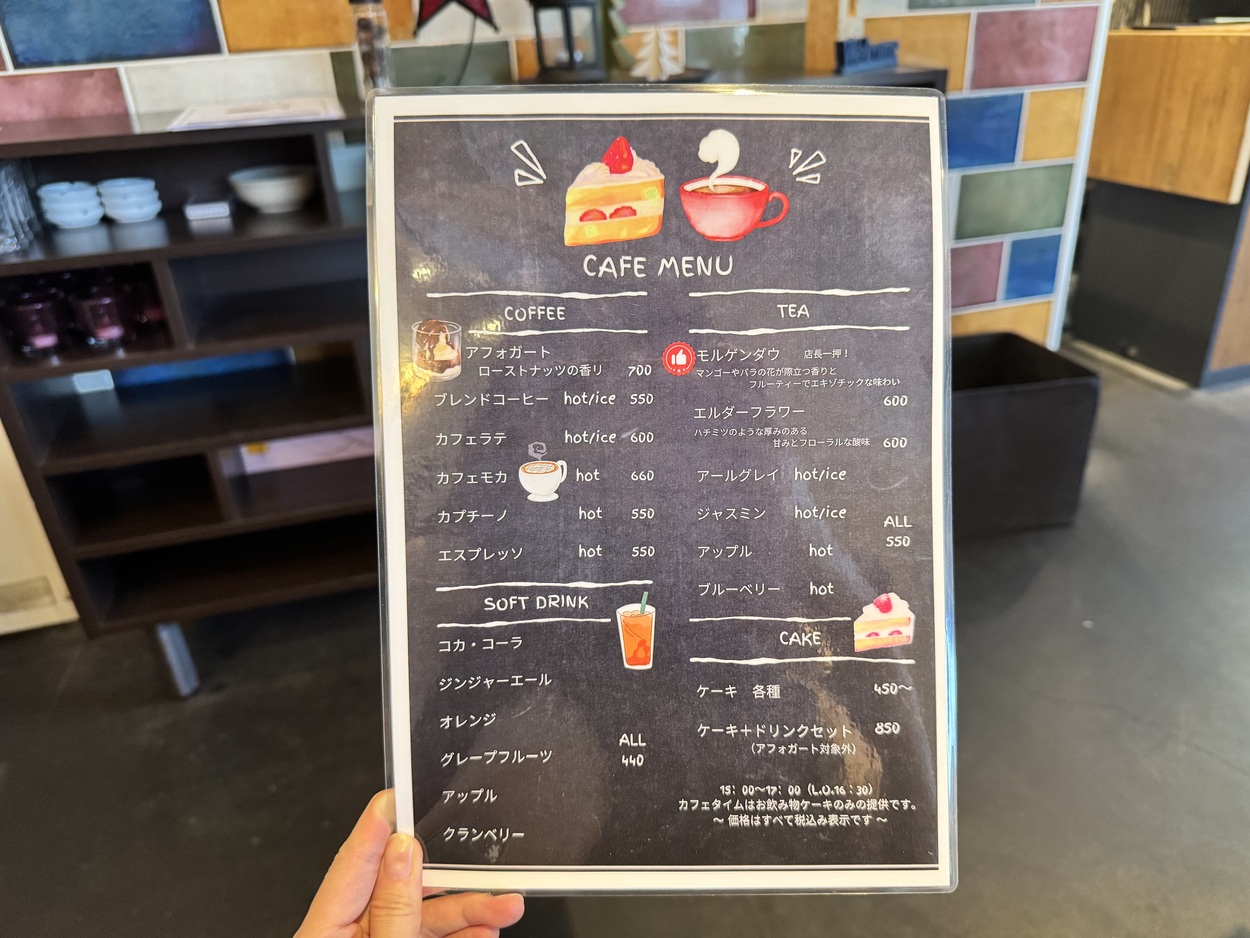 CAFE MENU
COFFEE
アフォガート
ローストナッツの香り 700
ブレンドコーヒー hot/ice 550
カフェラテ hot/ice 600
カフェモカ hot 660
カプチーノ hot 550
エスプレッソ hot 550
SOFT DRINK
コカ・コーラ
ジンジャーエール
オレンジ
グレープフルーツ
ALL
440
アップル
クランベリー
TEA
モルゲンダウ 店長一押！
マンゴーやバラの花が際立つ香りと
フルーティーでエキゾチックな味わい
600
エルダーフラワー
ハチミツのような厚みのある
甘みとフローラルな酸味 600
アールグレイ hot/ice
ジャスミン hot/ice
ALL
550
アップル hot
ブルーベリー hot
CAKE
ケーキ 各種 450〜
ケーキ+ドリンクセット 850
（アフォガート対象外）
15：00〜17：00（L.O.16：30）
カフェタイムはお飲み物ケーキのみの提供です。
〜 価格はすべて税込み表示です 〜